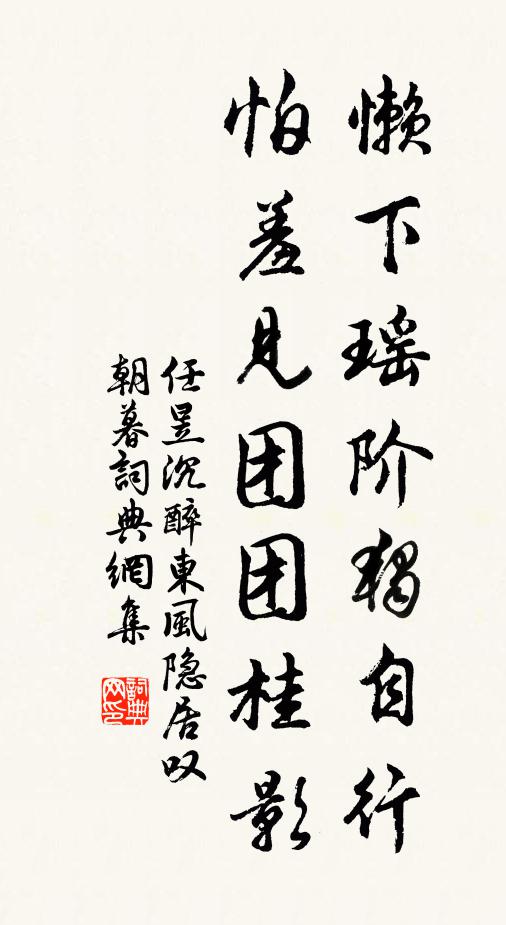 懒下瑶阶独自行
怕羞见团团桂影
任昱沉醉東風隐居叹
朝暮詞典網集
詞典网印